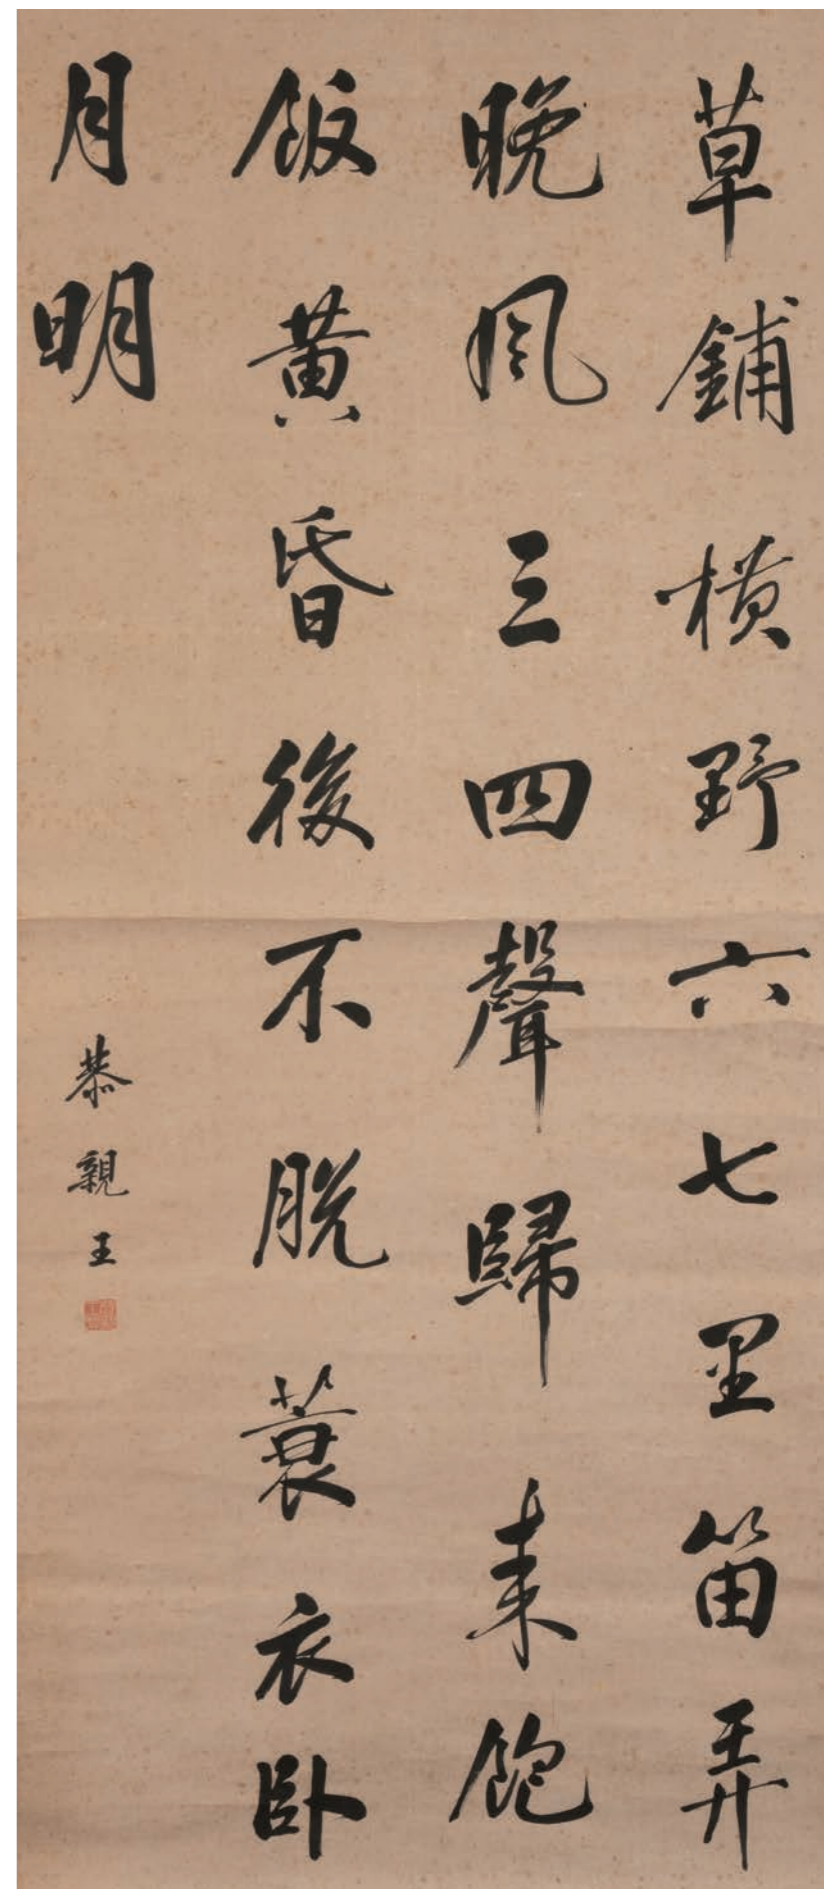 草鋪橫野六七里笛弄
晚風三四聲歸來飽
飯黃昏後不脫蓑衣臥
月明
恭親王